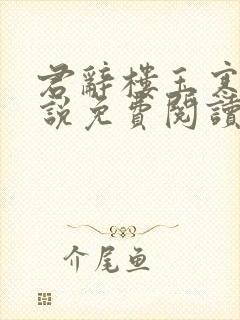 君辭樓玉寒
說免費閱讀
介尾鱼